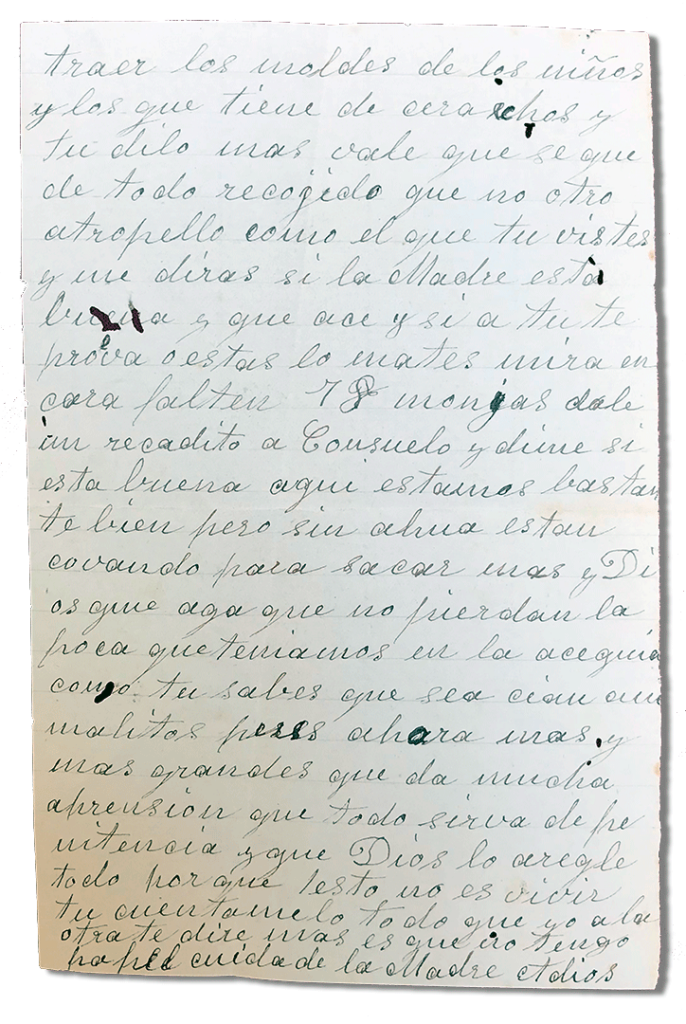 traer los moldes de los niños
y los que tiene de cera echos y
tu dilo mas vale que se que
de todo recogido que no otro
atropello como el que tu vistes
y me diras si la Madre esta
buena y que ace y si a tu te
prova o estas lo mates mira en
cara falten 78 monjas dale
un recadito a Consuelo y dime si
esta buena aqui estamos bastan
te bien pero sin ahua estan
covando para sacar mas y Di
os que aga que no pierdan la
poca que teniamos en la acequia
como tu sabes que sea cian ani
malitos pues ahara mas y
mas grandes que da mucha
aprension que todo sirva de pe
nitencia y que Dios lo aregle
todo porque esto no es vivir
tu cuentamelo todo que yo a la
otra te dire mas es que no tengo
papel cuida de la Madre Adios